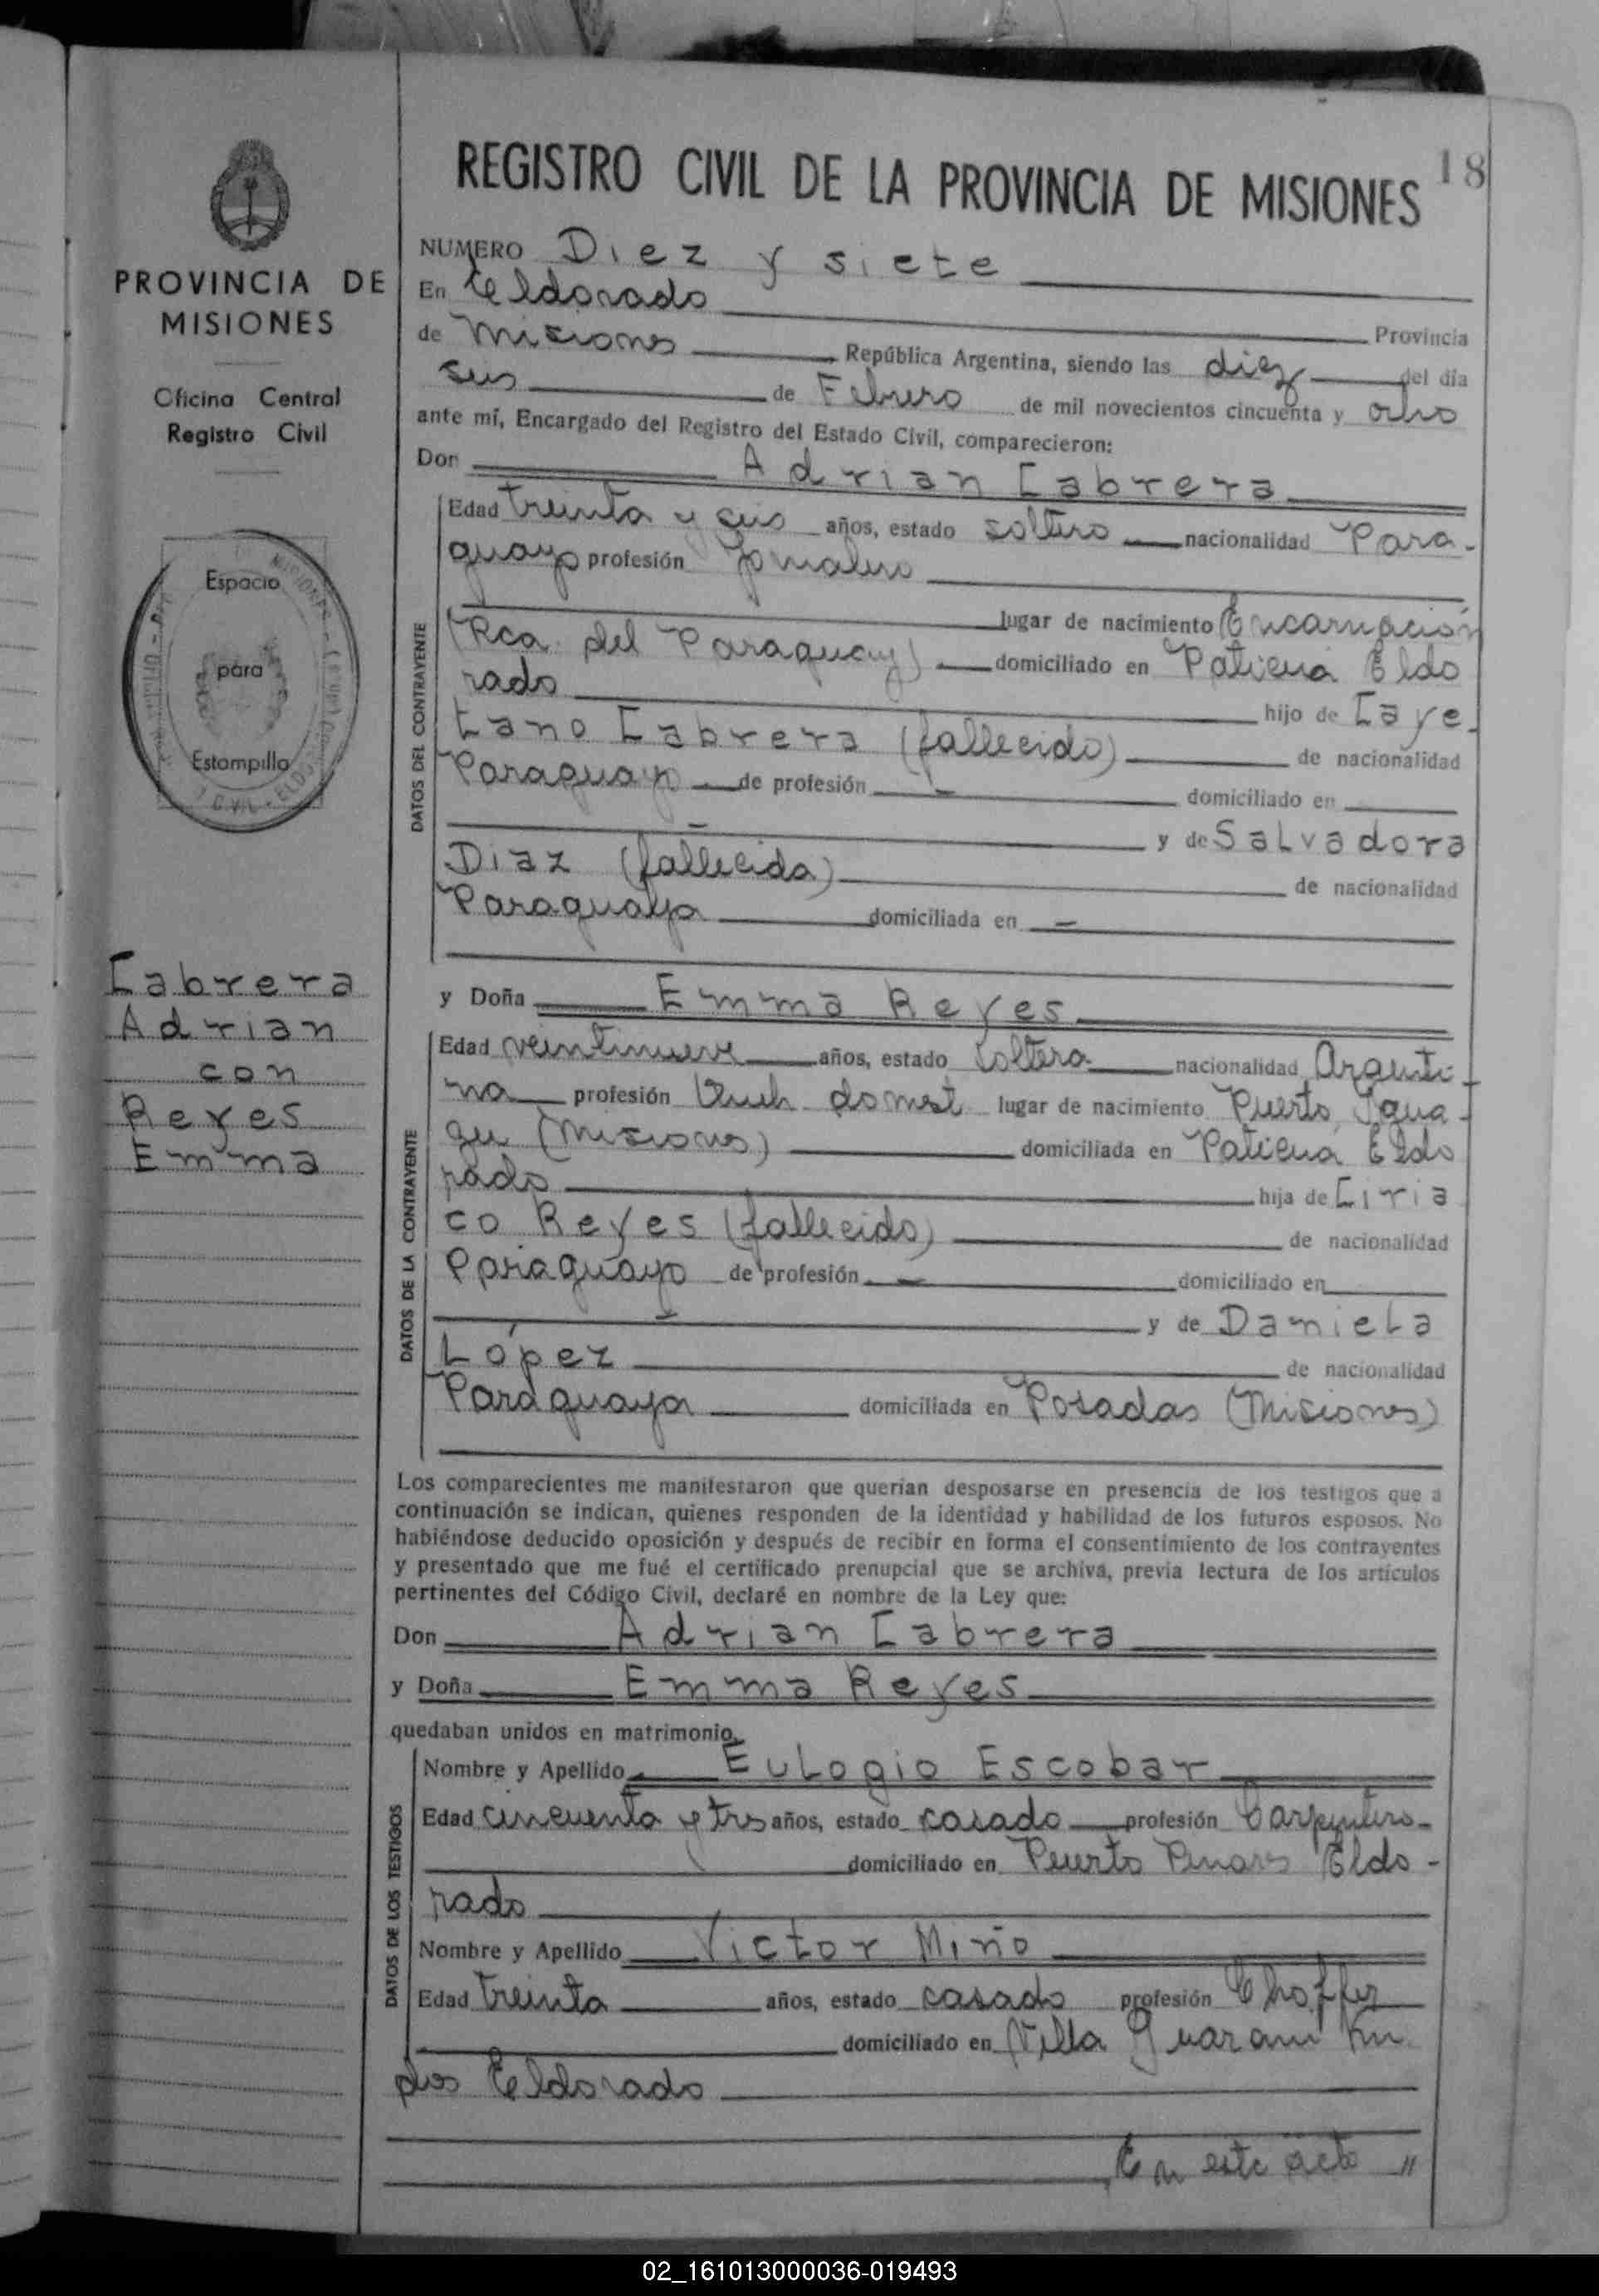 18
REGISTRO CIVIL DE LA PROVINCIA DE MISIONES
PROVINCIA DE
MISIONES
Oficina Central
Registro Civil
Espacio
para
Estampilla
Cabrera
Adrian
con
Reyes
Emma
NUMERO Diez y siete
En Eldorado
Provincia
de Misiones República Argentina, siendo las diez del día
seis de Febrero de mil novecientos cincuenta y ocho
ante mí, Encargado del Registro del Estado Civil, comparecieron:
Don Adrian Cabrera
DATOS DEL CONTRAYENTE
Edad treinta y seis años, estado soltero nacionalidad Para-
guayo profesión Jornalero
lugar de nacimiento Encarnación
(Rca. del Paraguay) domiciliado en Patiená Eldo
rado hijo de Caye-
tano Cabrera (fallecido) de nacionalidad
Paraguayo de profesión - domiciliado en
- y de Salvadora
Diaz (fallecida) de nacionalidad
Paraguaya domiciliada en -
y Doña Emma Reyes
DATOS DE LA CONTRAYENTE
Edad veintinueve años, estado soltera nacionalidad Argenti-
na profesión Queh. domest. lugar de nacimiento Puerto Igua-
zu (Misiones) domiciliada en Patiená Eldo
rado hija de Ciria
co Reyes (fallecido) de nacionalidad
Paraguayo de profesión - domiciliado en
- y de Daniela
López de nacionalidad
Paraguaya domiciliada en Posadas (Misiones)
Los comparecientes me manifestaron que querían desposarse en presencia de los testigos que a
continuación se indican, quienes responden de la identidad y habilidad de los futuros esposos. No
habiéndose deducido oposición y después de recibir en forma el consentimiento de los contrayentes
y presentado que me fué el certificado prenupcial que se archiva, previa lectura de los artículos
pertinentes del Código Civil, declaré en nombre de la Ley que:
Don Adrian Cabrera
y Doña Emma Reyes
quedaban unidos en matrimonio.
DATOS DE LOS TESTIGOS
Nombre y Apellido Eulogio Escobar
Edad cincuenta y tres años, estado casado profesión Carpintero-
domiciliado en Puerto Pinares Eldo-
rado
Nombre y Apellido Victor Miño
Edad treinta años, estado casado profesión Choffer
domiciliado en Villa Guaraní Km.
dos Eldorado
En este acto "
02_161013000036-019493